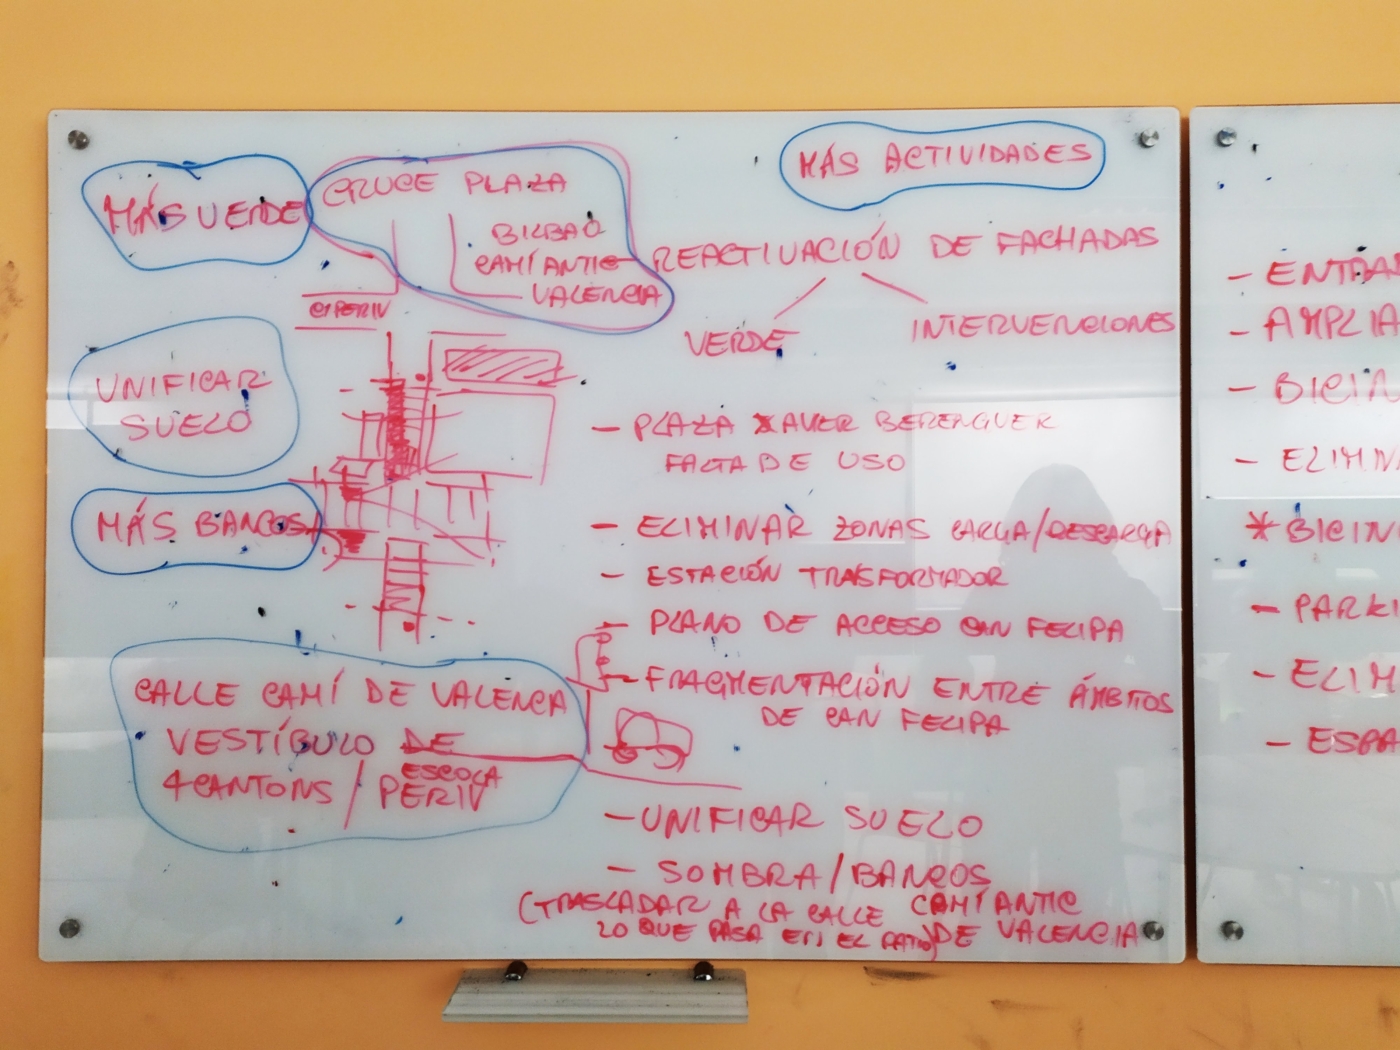 MÁS VERDE
CRUCE PLAZA
BILBAO
CAMÍ ANTIC
VALENCIA
C/PERIV
UNIFICAR
SUELO
MÁS BANCOS
CALLE CAMÍ DE VALENCA
VESTÍBULO DE
ESCOLA
4CANTONS / PERIV
MÁS ACTIVIDADES
REACTIVACIÓN DE FACHADAS
VERDE
INTERVENCIONES
- PLAZA XAVIER BERENGUER
FALTA DE USO
- ELIMINAR ZONAS CARGA/DESCARGA
- ESTACIÓN TRASFORMADOR
- PLANO DE ACCESO CAN FELIPA
- FRAGMENTACIÓN ENTRE ÁMBITOS
DE CAN FELIPA
- UNIFICAR SUELO
- SOMBRA/BANCOS
(TRASLADAR A LA CALLE CAMÍ ANTIC
LO QUE PASA EN EL PATIO) DE VALENCIA
- ENTRA
- AMPLIA
- BICIN
- ELIMIN
* BICIN
- PARKI
- ELIM
- ESPA